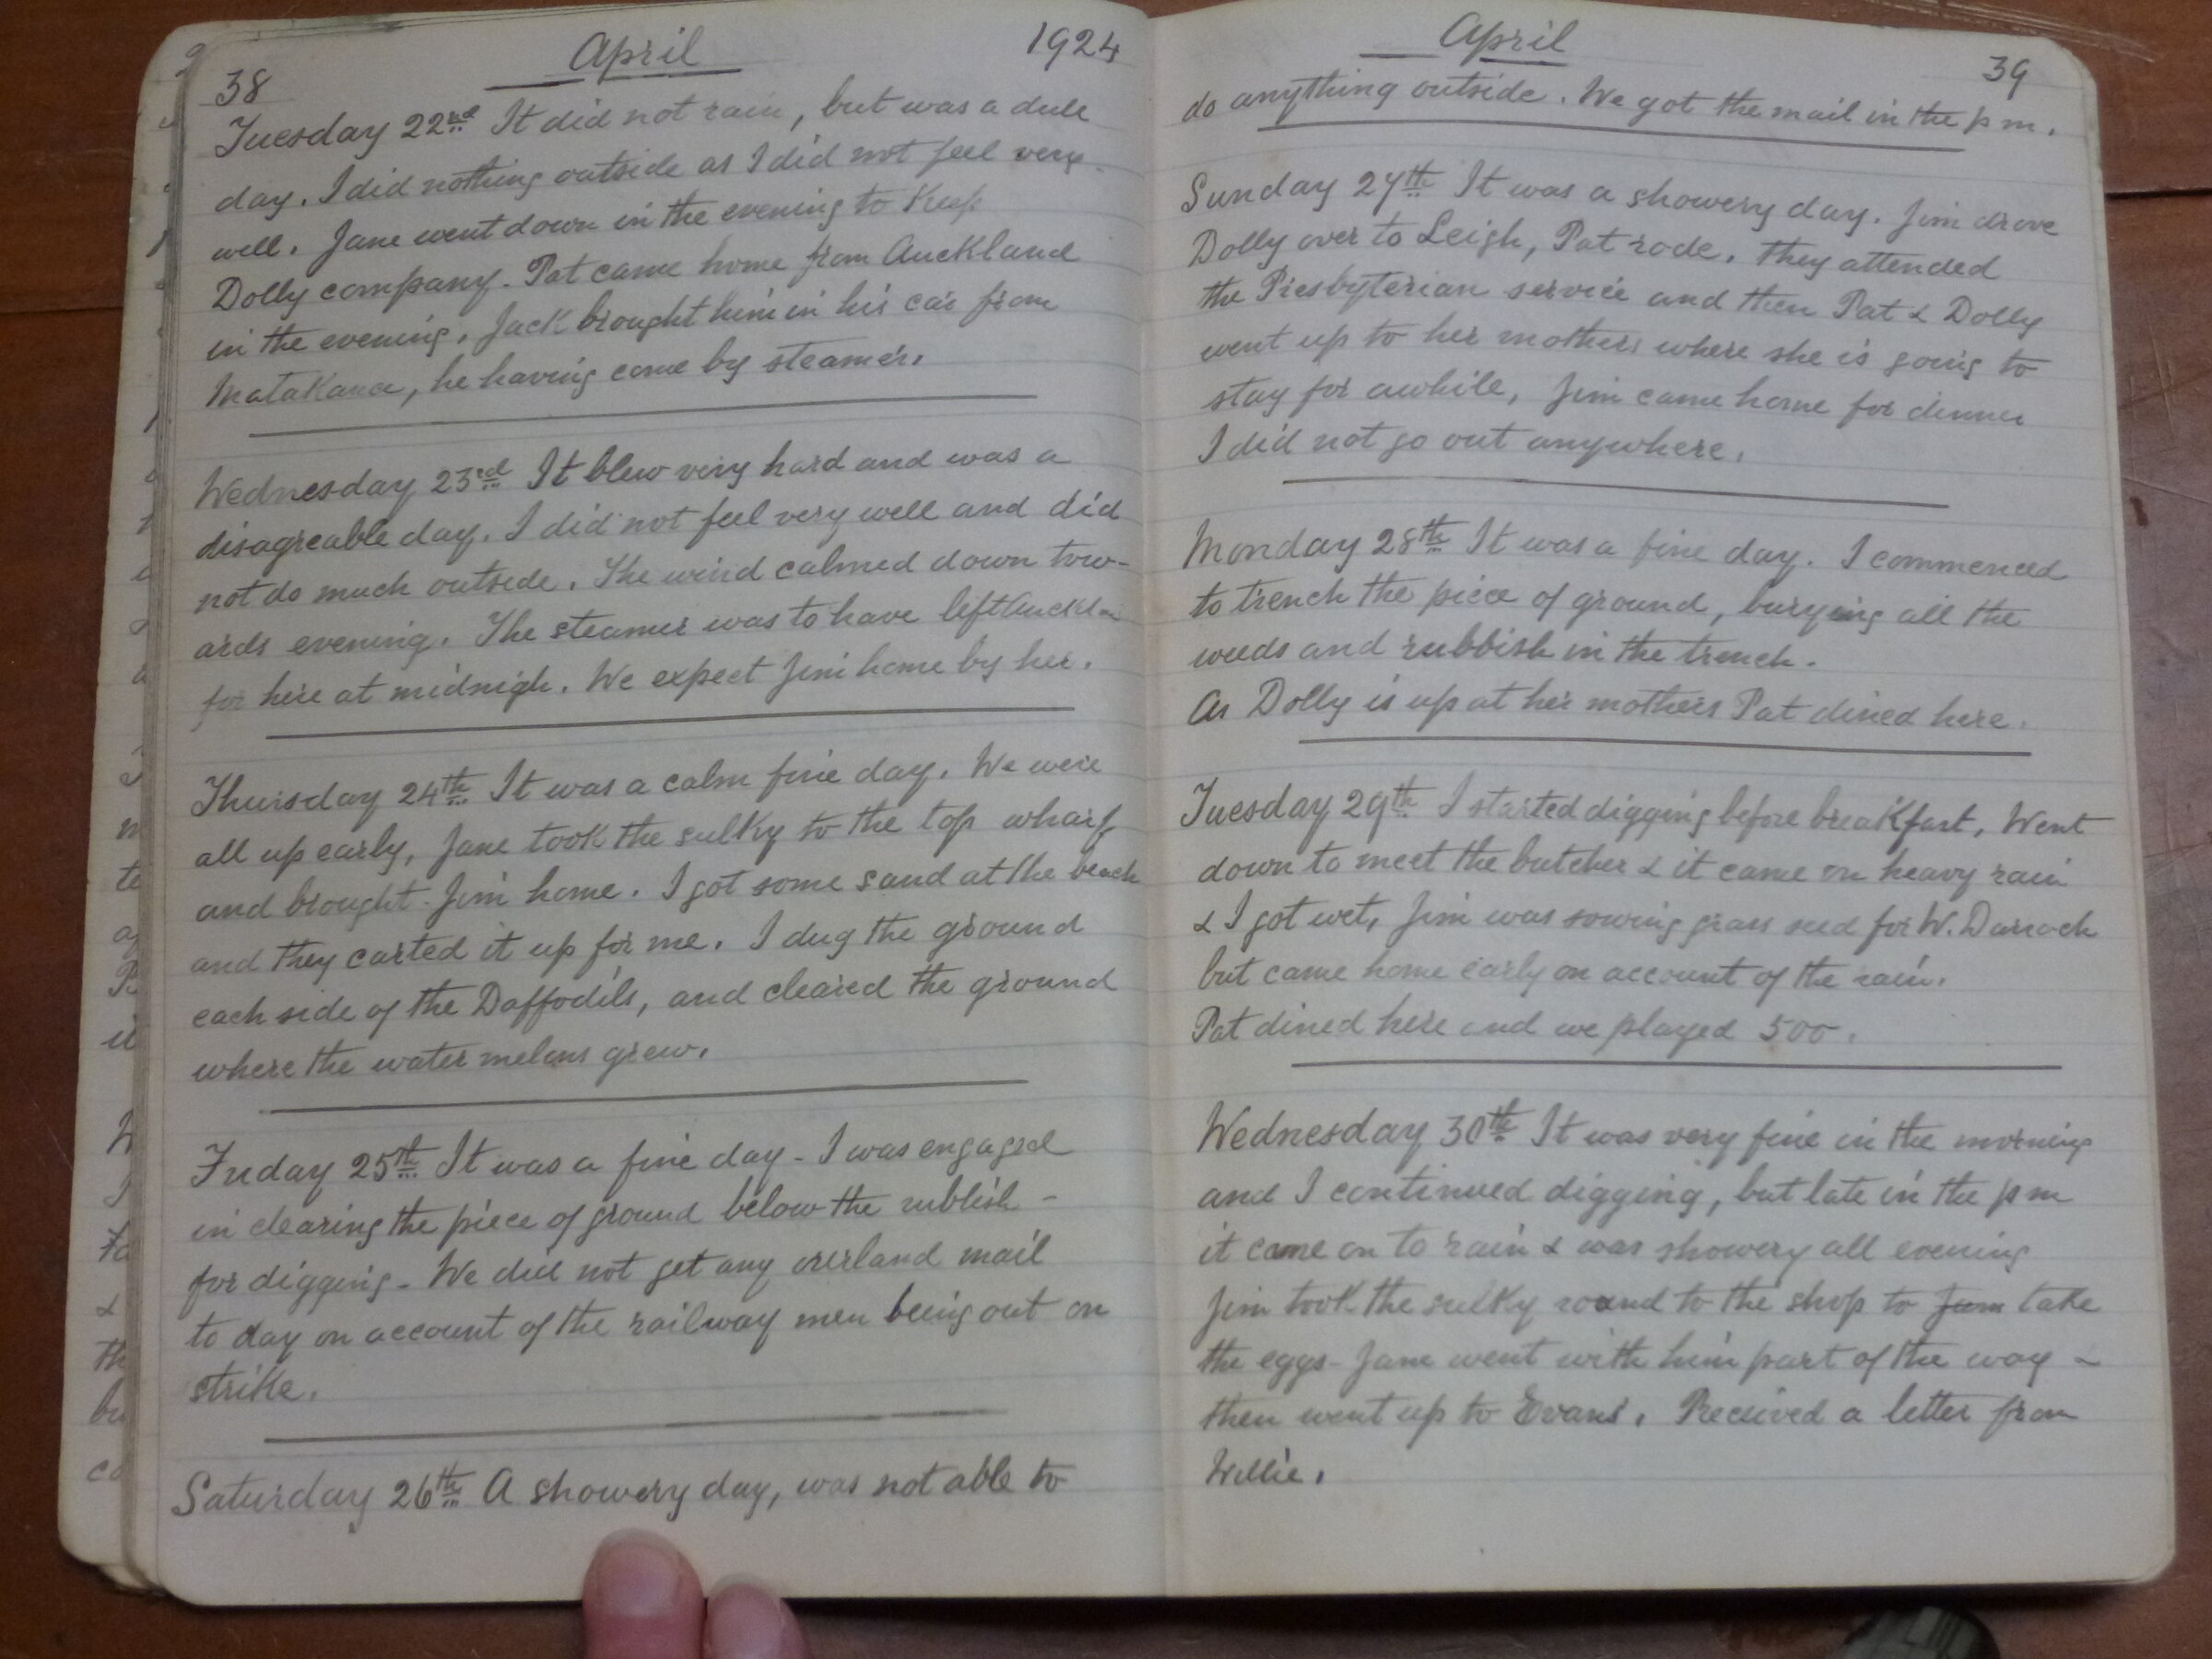 38 April 1924
Tuesday 22nd It did not rain, but was a dull
day. I did nothing outside as I did not feel very
well. Jane went down in the evening to Keep
Dolly company. Pat came home from Auckland
in the evening. Jack brought him in his car from
Matakana, he having come by steamer.
Wednesday 23rd It blew very hard and was a
disagreable day. I did not feel very well and did
not do much outside. The wind calmed down tow-
ards evening. The steamer was to have left Auckla
for here at midnigh. We expect Jim home by her.
Thursday 24th It was a calm fine day. We were
all up early, Jane took the sulky to the top wharf
and brought Jim home. I got some sand at the beach
and they carted it up for me. I dug the ground
each side of the Daffodils, and cleared the ground
where the water melons grew.
Friday 25th It was a fine day - I was engaged
in clearing the piece of ground below the rubbish -
for digging - We did not get any overland mail
to day on account of the railway men being out on
strike.
Saturday 26th A showery day, was not able to
April 39
do anything outside. We got the mail in the pm.
Sunday 27th It was a showery day. Jim drove
Dolly over to Leigh, Pat rode. They attended
the Presbyterian service and then Pat & Dolly
went up to her mothers where she is going to
stay for awhile, Jim came home for dinner
I did not go out anywhere.
Monday 28th It was a fine day. I commenced
to trench the piece of ground, burying all the
weeds and rubbish in the trench.
As Dolly is up at her mothers Pat dined here.
Tuesday 29th I started digging before breakfast, Went
down to meet the butcher & it came on heavy rain
& I got wet, Jim was sowing grass seed for W. Darroch
but came home early on account of the rain.
Pat dined here and we played 500.
Wednesday 30th It was very fine in the morning
and I continued digging, but late in the pm
it came on to rain & was showery all evening
Jim took the sulky round to the shop to Jum take
the eggs - Jane went with him part of the way -
then went up to Evans. Received a letter from
Willie.